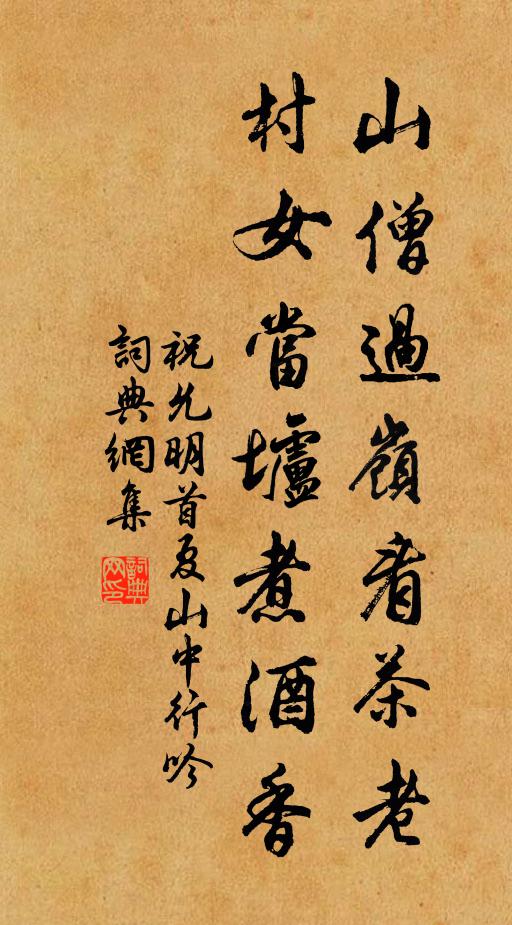 山僧過嶺看茶老
村女當壚煮酒香
祝允明首夏山中行吟
詞典網集
詞典网印